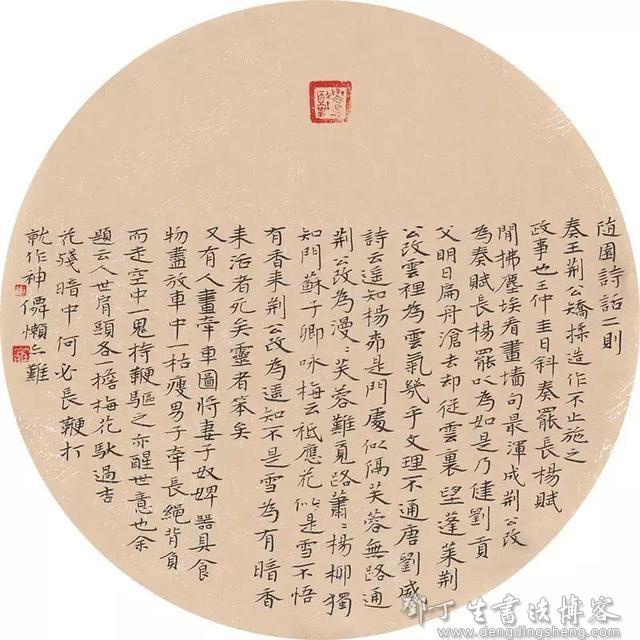 随園詩話二則
奏王荆公矯揉造作不止施之
政事也王仲圭日斜奏罷長楊賦
閒拂塵埃看畫墻句最渾成荆公改
為奏賦長楊罷以為如是乃健劉貢
父明日扁舟滄去却從雲裏望蓬莱荆
公改雲裡為雲氣幾乎文理不通唐劉威
詩云遥知楊柳是門處似隔芙蓉無路通
荆公改為漫〻芙蓉難覓路蕭〻楊柳獨
知門蘇子卿咏梅云祗應花似是雪不悟
有香来荆公改為遥知不是雪為有暗香
来活者死矣靈者笨矣
又有人畫牽車圖将妻子奴婢器具食
物盡放車中一枯瘦男子牽長繩背負
而走空中一鬼持鞭驅之亦醒世意也余
題云人世肩頭各一擔梅花馱過吉
花殘暗中何必長鞭打
就作神僊懶亦難
鄧丁生書法博客
www.dengdingsheng.com